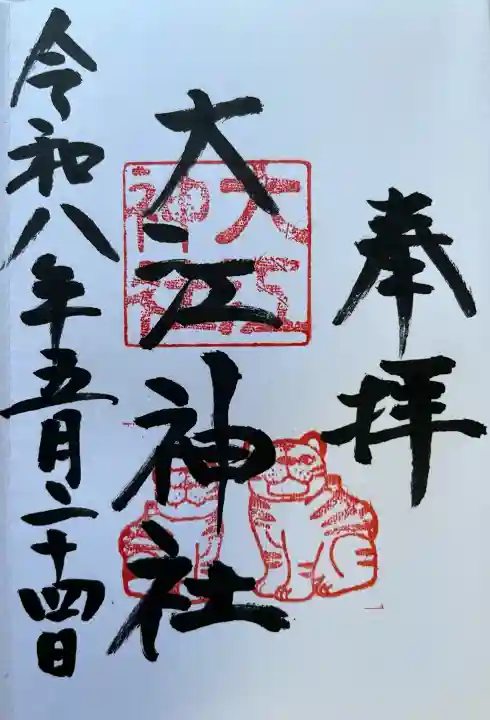 奉拝
大江神社
大江
神社
令和八年五月二十四日